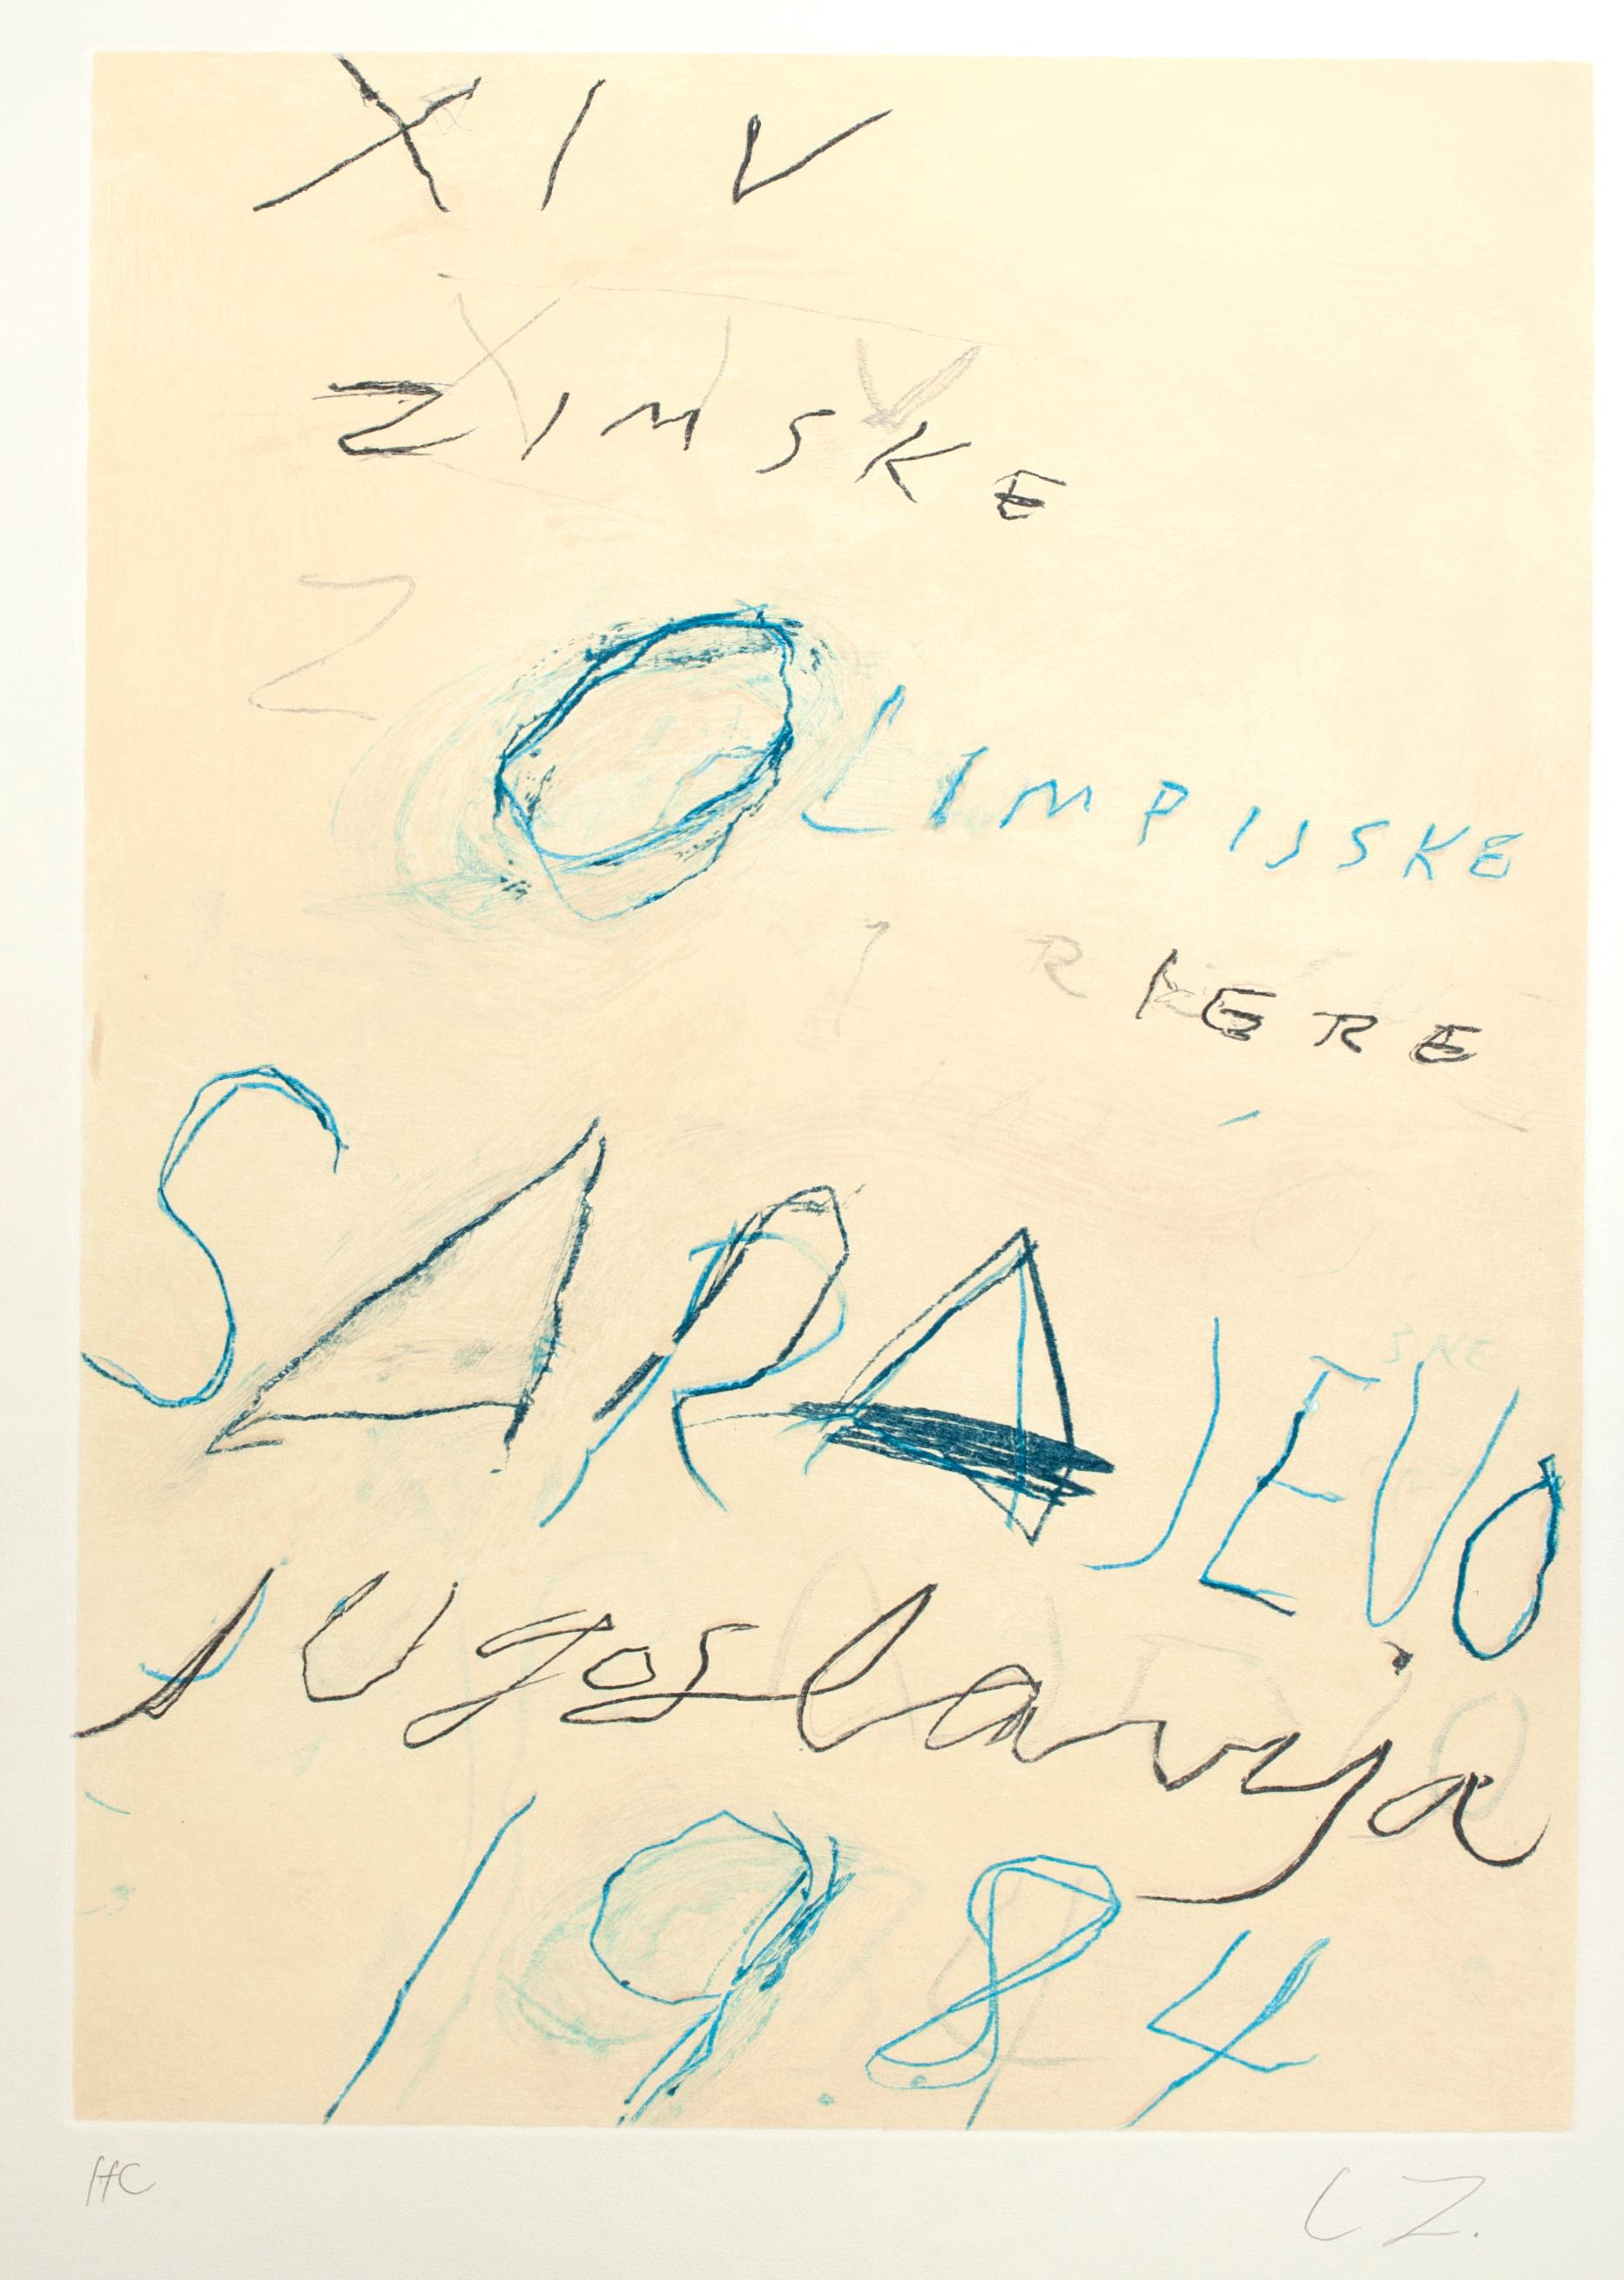 XIV
XIV
ZIMSKE
Z
OLIMPIJSKE
IGRE
SARAJEVO
JUgoslavija
1984
HC